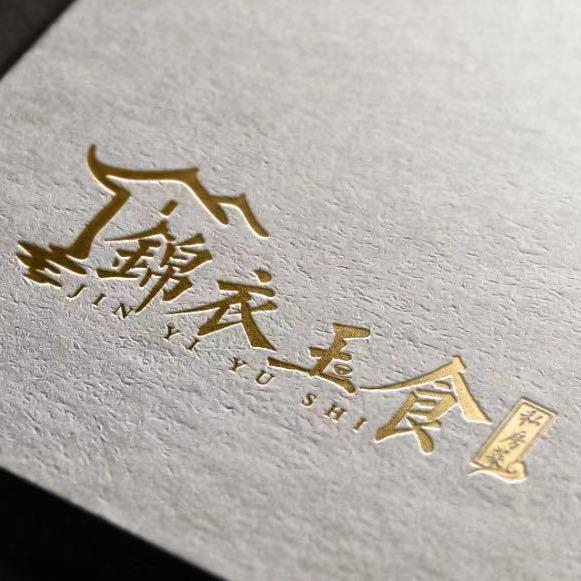 錦衣玉食
JIN YI YU SHI
私房菜